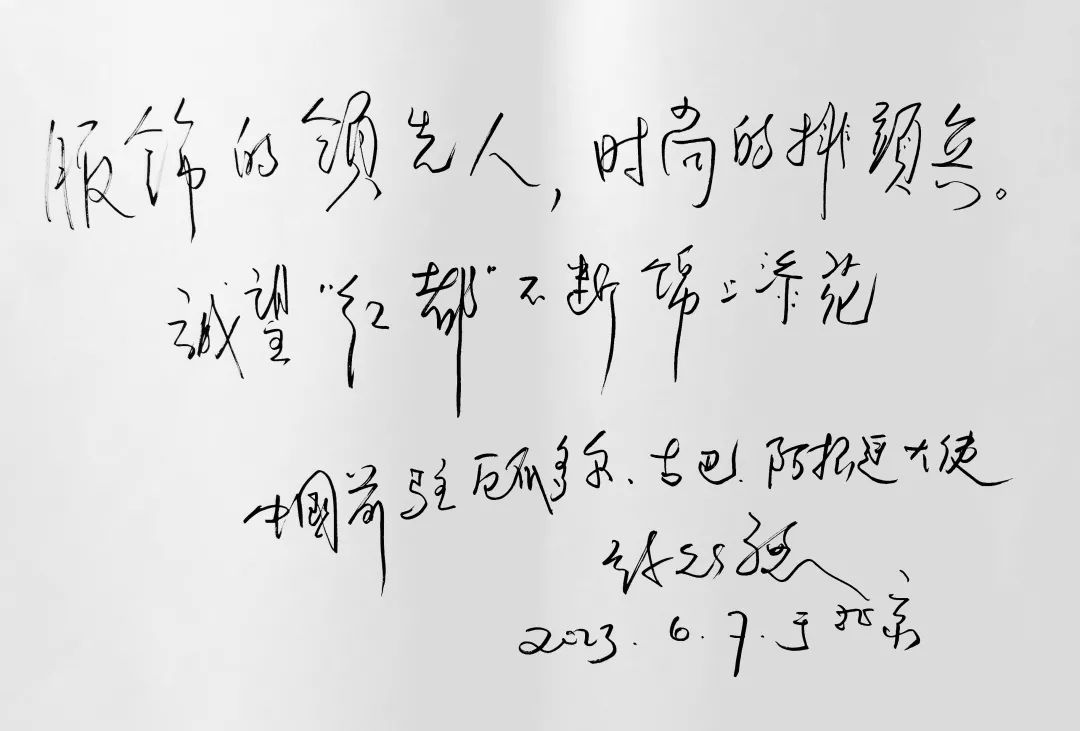 服饰的领先人，时尚的排頭兵。
誠望“红都”不断锦上添花
中國前驻厄瓜多尔、古巴、阿根廷大使
2023.6.7.于北京